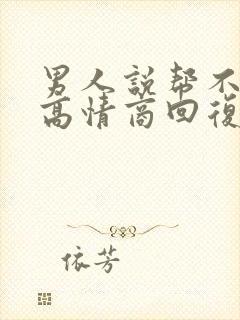 男人説帮不
高情商回復
依芳